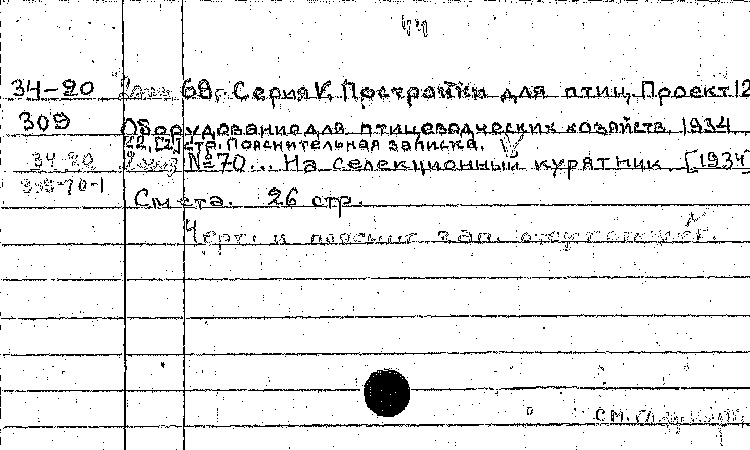 44
34-20 69. Серия V. Постройки для птиц, Проект 12
309 Оборудование для птицеводческих хозяйств. 1934
22, [2] стр. Пояснительная записка.
34-20 №70... На селекционный курятник [1934]
Смета. 26 стр.
Черт. и поясн. зап. отсутствует.
см. след. карт.